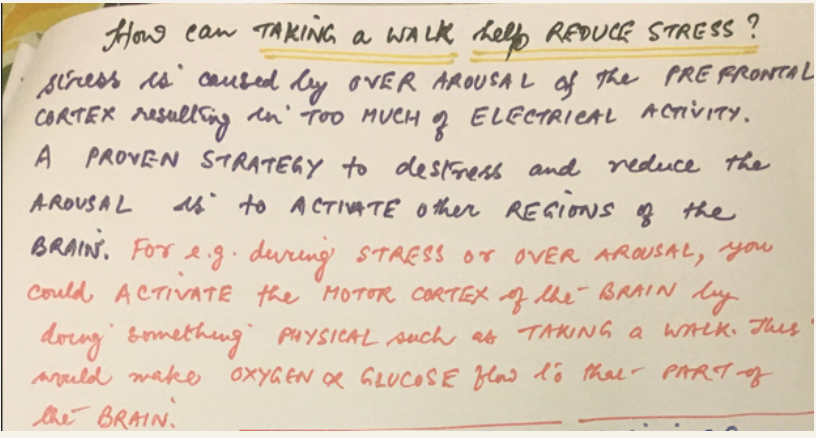 How can TAKING a WALK help REDUCE STRESS?
stress is caused by OVER AROUSAL of the PREFRONTAL
CORTEX resulting in TOO MUCH of ELECTRICAL ACTIVITY.
A PROVEN STRATEGY to destress and reduce the
AROUSAL is to ACTIVATE other REGIONS of the
BRAIN. For e.g. during STRESS or OVER AROUSAL, you
could ACTIVATE the MOTOR CORTEX of the BRAIN by
doing something PHYSICAL such as TAKING a WALK. This
would make OXYGEN & GLUCOSE flow to that PART of
the BRAIN.